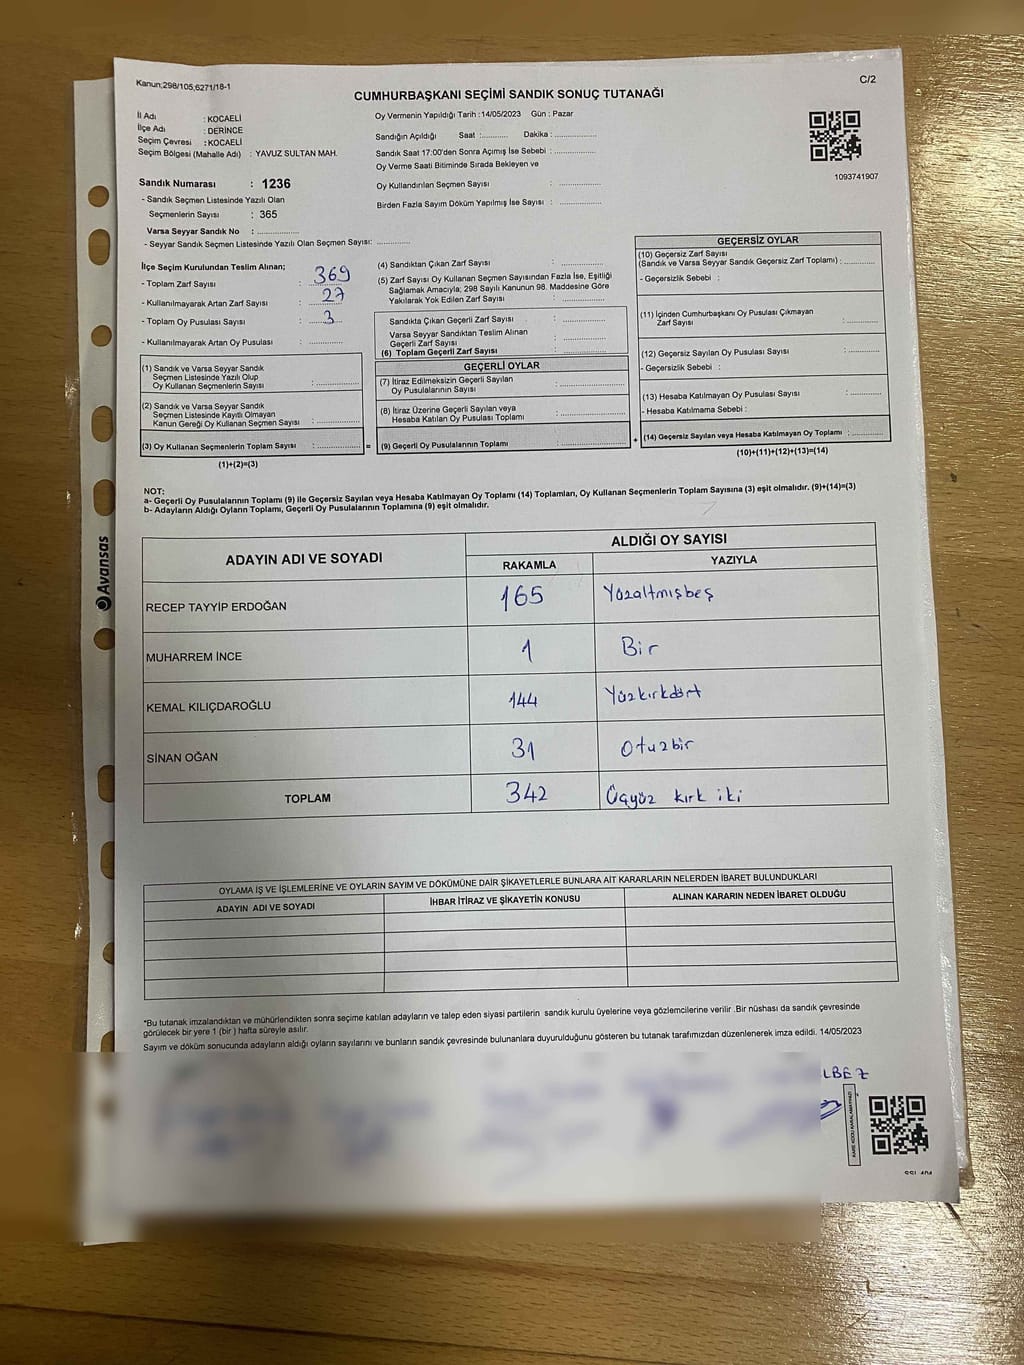 Kanun;298/105,6271/18-1
C/2
CUMHURBAŞKANI SEÇİMİ SANDIK SONUÇ TUTANAĞI
İl Adı : KOCAELİ
İlçe Adı : DERİNCE
Seçim Çevresi : KOCAELİ
Seçim Bölgesi (Mahalle Adı) : YAVUZ SULTAN MAH.
Oy Vermenin Yapıldığı Tarih :14/05/2023 Gün : Pazar
Sandığın Açıldığı Saat :........... Dakika :................
Sandık Saat 17:00'den Sonra Açımış İse Sebebi :................
Oy Verme Saati Bitiminde Sırada Bekleyen ve
Oy Kullandırılan Seçmen Sayısı : ................
Birden Fazla Sayım Döküm Yapılmış İse Sayısı : ................
1093741907
Sandık Numarası : 1236
- Sandık Seçmen Listesinde Yazılı Olan
Seçmenlerin Sayısı : 365
Varsa Seyyar Sandık No : ................
- Seyyar Sandık Seçmen Listesinde Yazılı Olan Seçmen Sayısı: ............
İlçe Seçim Kurulundan Teslim Alınan;
- Toplam Zarf Sayısı : 369
- Kullanılmayarak Artan Zarf Sayısı : 27
- Toplam Oy Pusulası Sayısı : 3
- Kullanılmayarak Artan Oy Pusulası : ............
(1) Sandık ve Varsa Seyyar Sandık
Seçmen Listesinde Yazılı Olup
Oy Kullanan Seçmenlerin Sayısı : ................
(2) Sandık ve Varsa Seyyar Sandık
Seçmen Listesinde Kayıtlı Olmayan
Kanun Gereği Oy Kullanan Seçmen Sayısı : ................
(3) Oy Kullanan Seçmenlerin Toplam Sayısı : ................ =
(1)+(2)=(3)
(4) Sandıktan Çıkan Zarf Sayısı : ................
(5) Zarf Sayısı Oy Kullanan Seçmen Sayısından Fazla İse, Eşitliği
Sağlamak Amacıyla; 298 Sayılı Kanunun 98. Maddesine Göre
Yakılarak Yok Edilen Zarf Sayısı : ................
Sandıkta Çıkan Geçerli Zarf Sayısı : ................
Varsa Seyyar Sandıktan Teslim Alınan
Geçerli Zarf Sayısı : ................
(6) Toplam Geçerli Zarf Sayısı : ................
GEÇERLİ OYLAR
(7) İtiraz Edilmeksizin Geçerli Sayılan
Oy Pusulalarının Sayısı : ................
(8) İtiraz Üzerine Geçerli Sayılan veya
Hesaba Katılan Oy Pusulası Toplamı : ................
(9) Geçerli Oy Pusulalarının Toplamı : ................ +
GEÇERSİZ OYLAR
(10) Geçersiz Zarf Sayısı
(Sandık ve Varsa Seyyar Sandık Geçersiz Zarf Toplamı) :............
- Geçersizlik Sebebi :
(11) İçinden Cumhurbaşkanı Oy Pusulası Çıkmayan
Zarf Sayısı :............
(12) Geçersiz Sayılan Oy Pusulası Sayısı :............
- Geçersizlik Sebebi :
(13) Hesaba Katılmayan Oy Pusulası Sayısı :............
- Hesaba Katılmama Sebebi :
(14) Geçersiz Sayılan veya Hesaba Katılmayan Oy Toplamı :............
(10)+(11)+(12)+(13)=(14)
NOT:
a- Geçerli Oy Pusulalarının Toplamı (9) ile Geçersiz Sayılan veya Hesaba Katılmayan Oy Toplamı (14) Toplamları, Oy Kullanan Seçmenlerin Toplam Sayısına (3) eşit olmalıdır. (9)+(14)=(3)
b- Adayların Aldığı Oyların Toplamı, Geçerli Oy Pusulalarının Toplamına (9) eşit olmalıdır.
ADAYIN ADI VE SOYADI
ALDIĞI OY SAYISI
RAKAMLA YAZIYLA
RECEP TAYYİP ERDOĞAN 165 Yüzaltmışbeş
MUHARREM İNCE 1 Bir
KEMAL KILIÇDAROĞLU 144 Yüzkırkdört
SİNAN OĞAN 31 Otuzbir
TOPLAM 342 Üçyüz kırk iki
OYLAMA İŞ VE İŞLEMLERİNE VE OYLARIN SAYIM VE DÖKÜMÜNE DAİR ŞİKAYETLERLE BUNLARA AİT KARARLARIN NELERDEN İBARET BULUNDUKLARI
ADAYIN ADI VE SOYADI İHBAR İTİRAZ VE ŞİKAYETİN KONUSU ALINAN KARARIN NEDEN İBARET OLDUĞU
*Bu tutanak imzalandıktan ve mühürlendikten sonra seçime katılan adayların ve talep eden siyasi partilerin sandık kurulu üyelerine veya gözlemcilerine verilir .Bir nüshası da sandık çevresinde
görülecek bir yere 1 (bir ) hafta süreyle asılır.
Sayım ve döküm sonucunda adayların aldığı oyların sayılarını ve bunların sandık çevresinde bulunanlara duyurulduğunu gösteren bu tutanak tarafımızdan düzenlenerek imza edildi. 14/05/2023
LBEZ
Avansas